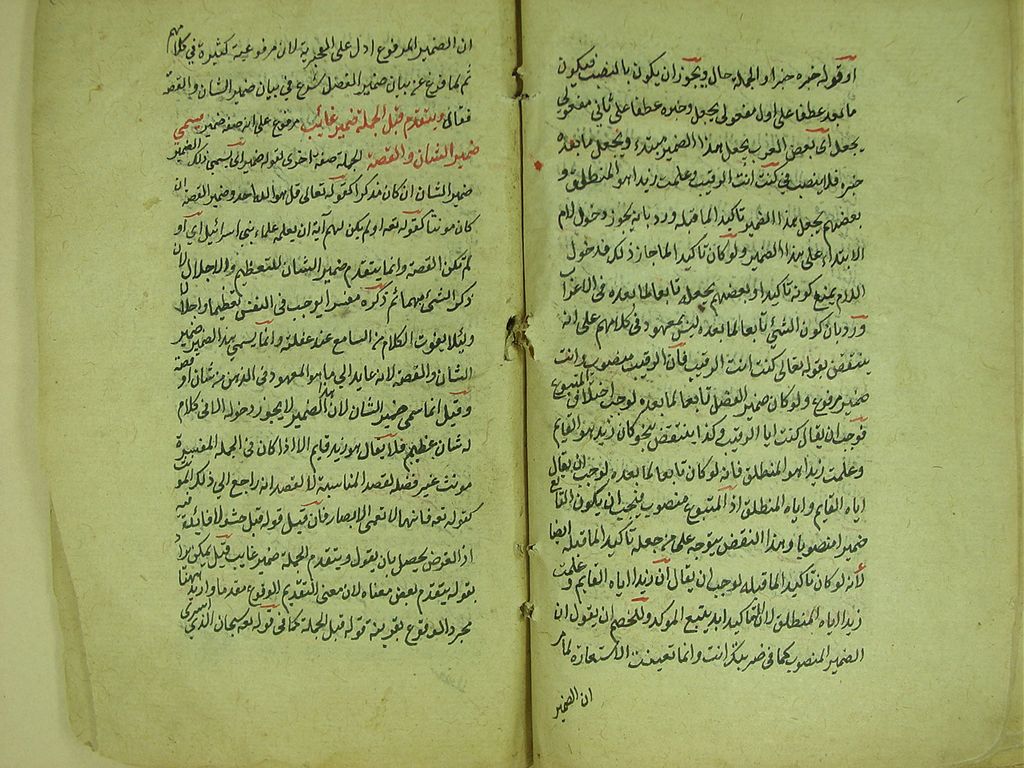 او قوله خبره خبر او الجملة حال ويجوز ان يكون بالنصب فيكون
ما بعد عطفا على اول مفعولى يجعل وخبره عطفا على ثانى مفعولى
يجعل اى بعض العرب يجعل هذا الضمير مبتدء ويجعل ما بعده
خبره فلا ينصب فى كنت انت الرقيب وعلمت زيدا هو المنطلق و
بعضهم يجعل هذا الضمير تاكيد لما قبله ورد بانه يجوز دخول لام
الابتداء على هذا الضمير ولو كان تاكيدا لما جاز ذلك فدخول
اللام يمنع كونه تاكيدا وبعضهم يجعله تابعا لما بعده فى الاعراب
ورد بان كون الشيئ تابعا لما بعده ليس بمعهود فى كلامهم على انه
ينتقض بقوله تعالى كنت انت الرقيب فان الرقيب منصوب وانت
ضمير مرفوع ولو كان ضمير الفصل تابعا لما بعده لوجب اختلافى المتبوع
فوجب ان يقال كنت اياك الرقيب وكذا ينتقض بنحو كان زيد هو القايم
وعلمت زيدا هو المنطلق فانه لو كان تابعا لما بعده لوجب ان يقال
اياه القايم واياه المنطلق اذ المتبوع منصوب فيجب ان يكون التابع
ضميرا منصوبا وهذا النقض يتوجه على من جعله تاكيد لما قبله ايضا
لانه لو كان تاكيد لما قبله لوجب ان يقال ان زيدا اياه القايم وعلمت
زيدا اياه المنطلق لان التاكيد ابدا يتبع الموكد وللخصم ان يقول ان
الضمير المنصوب كما فى ضربتك انت وانما تعينت الاستعارة لما مر
ان الضمير
ان الضمير المرفوع ادل على الخبرية لان مرفوعية كثيرة فى كلامهم
ثم لما فرغ عن بيان ضمير الفصل شرع فى بيان ضمير الشان والقصة
فقال ويتقدم قبل الجملة ضمير غايب مرفوع على انه صفة ضمير يسمى
ضمير الشان والقصة الجملة صفة اخرى لقوله ضمير اى يسمى ذلك الضمير
ضمير الشان ان كان مذكرا كقوله تعالى قل هو الله احد وضمير القصة ان
كان مونثا كقوله تعه اولم يكن لهم آية ان يعلمه علماء بنى اسرائيل اى او
لم تكن القصة وانما يتقدم ضمير الشان للتعظيم والاجلال لان
ذكر الشيئ مبهما ثم ذكره مفسرا يوجب فى النفس تعظيما واجلالا
ولئلا يفوت الكلام من السامع عند غفلته وانما يسمى هذا الضمير ضمير
الشان والقصة لانه عايد الى ما هو المعهود فى الذهن من شان او قصة
وقيل انما سمى ضمير الشان لان هذا الضمير لا يجوز دخوله الا فى كلام
له شان عظيم فلا يقال هو زيد قايم الا اذا كان فى الجملة المفسرة
مونث غير فضلة لقصد المناسبة لا لقصد انه راجع الى ذلك المونث
كقوله تعه فانها لا تعمى الابصار فان قيل قوله قبل حشو لا فايدة فيه
اذ الغرض يحصل بان يقول ويتقدم الجملة ضمير غايب قيل يمكن ان يراد
بقوله يتقدم بعض معناه لان معنى التقديم الوقوع مقدما واريد ههنا
مجرد الوقوع بقرينة قوله قبل الجملة كما فى قوله تعه سبحان الذى اسرى